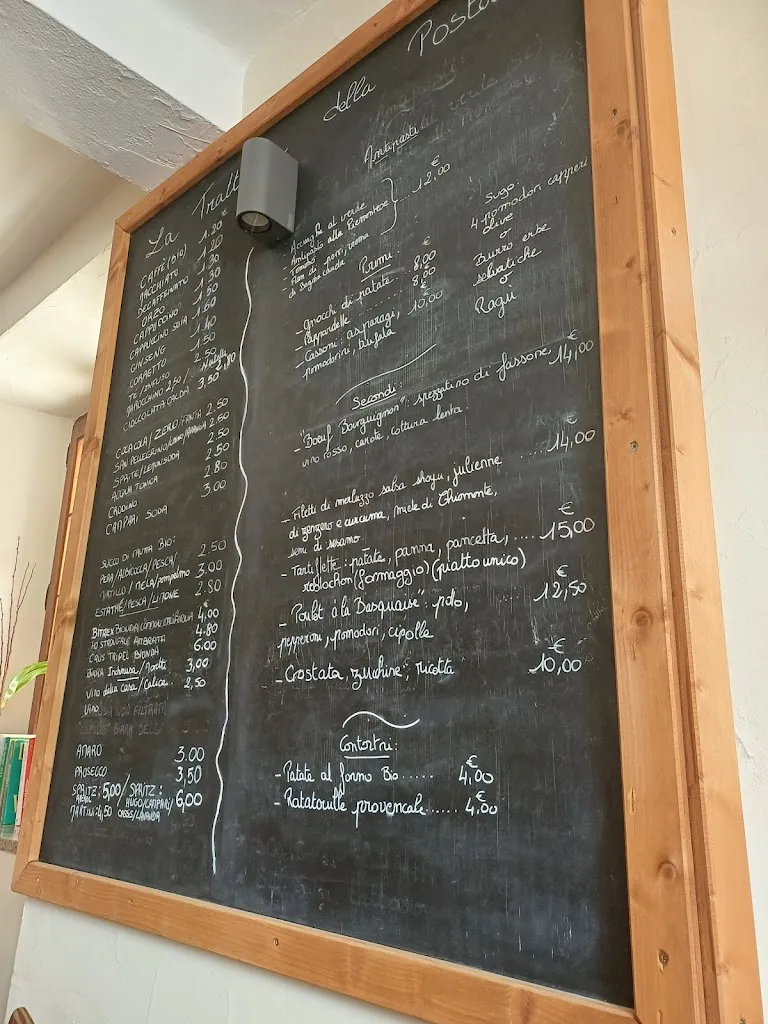 La Tratt
della Posta
CAFFÈ (BIO) 1.20 €
MACCHIATO 1.20
DECAFFEINATO 1.30
ORZO 1.30
CAPPUCCINO 1.50
CAPPUCCINO SOIA 1.60
GINSENG 1.40
CORRETTO 1.50
TE/INFUSO 2.50
MAROCCHINO 2,50/ Nutella 2,80
CIOCCOLATA CALDA 3,50
COCA COLA / ZERO/FANTA 2.50
SAN PELLEGRINO/ 2.50
SPRITE/LEMONSODA 2.50
ACQUA TONICA 2.50
CRODINO 2.80
CAMPARI SODA 3.00
SUCCO DI FRUTTA BIO:
PERA/ALBICOCCA/PESCA/ 2.50
MIRTILLO / MELA/pompelmo 3.00
ESTATHÉ/PESCA/LIMONE 2.80
4,00 €
AMBRATA 4.80
TRIPEL BIONDA 6.00
BIRRA Ichnusa/Moretti 3,00
vino della casa/Calice 2,50
VINO
AMARO 3.00
PROSECCO 3,50
SPRITZ: 5,00/SPRITZ:
APEROL HUGO/CAMPARI/ 6,00
MARTINI: 4,50 CASSIS/LAVANDA
Antipasti:
- Acciughe al verde
- Antipasto alla Piemontese
- Tomino
- Flan di porri, crema
di bagna cauda
} .... 12,00 €
Primi:
- gnocchi di patate 8,00 €
- Pappardelle 8,00
- Cassoni: asparagi, 10,00
pomodorini, bufala
Sugo
4 pomodori capperi
olive
o
Burro erbe
selvatiche
o
Ragù
Secondi:
- "Boeuf Bourguignon": spezzatino di fassone, 14,00 €
vino rosso, carote, cottura lenta
- Filetti di merluzzo salsa shoyu, julienne ..... 14,00 €
di zenzero e curcuma, miele di Chiomonte,
semi di sesamo.
- Tartiflette: patate, panna, pancetta, .... 15,00 €
reblochon (formaggio) (piatto unico)
- "Poulet à la Basquaise": pollo, 12,50 €
peperoni, pomodori, cipolla
- Crostata, zucchine, ricotta 10,00 €
Contorni:
- Patate al forno Bio ..... 4,00 €
- Ratatouille provencale ...... 4,00 €